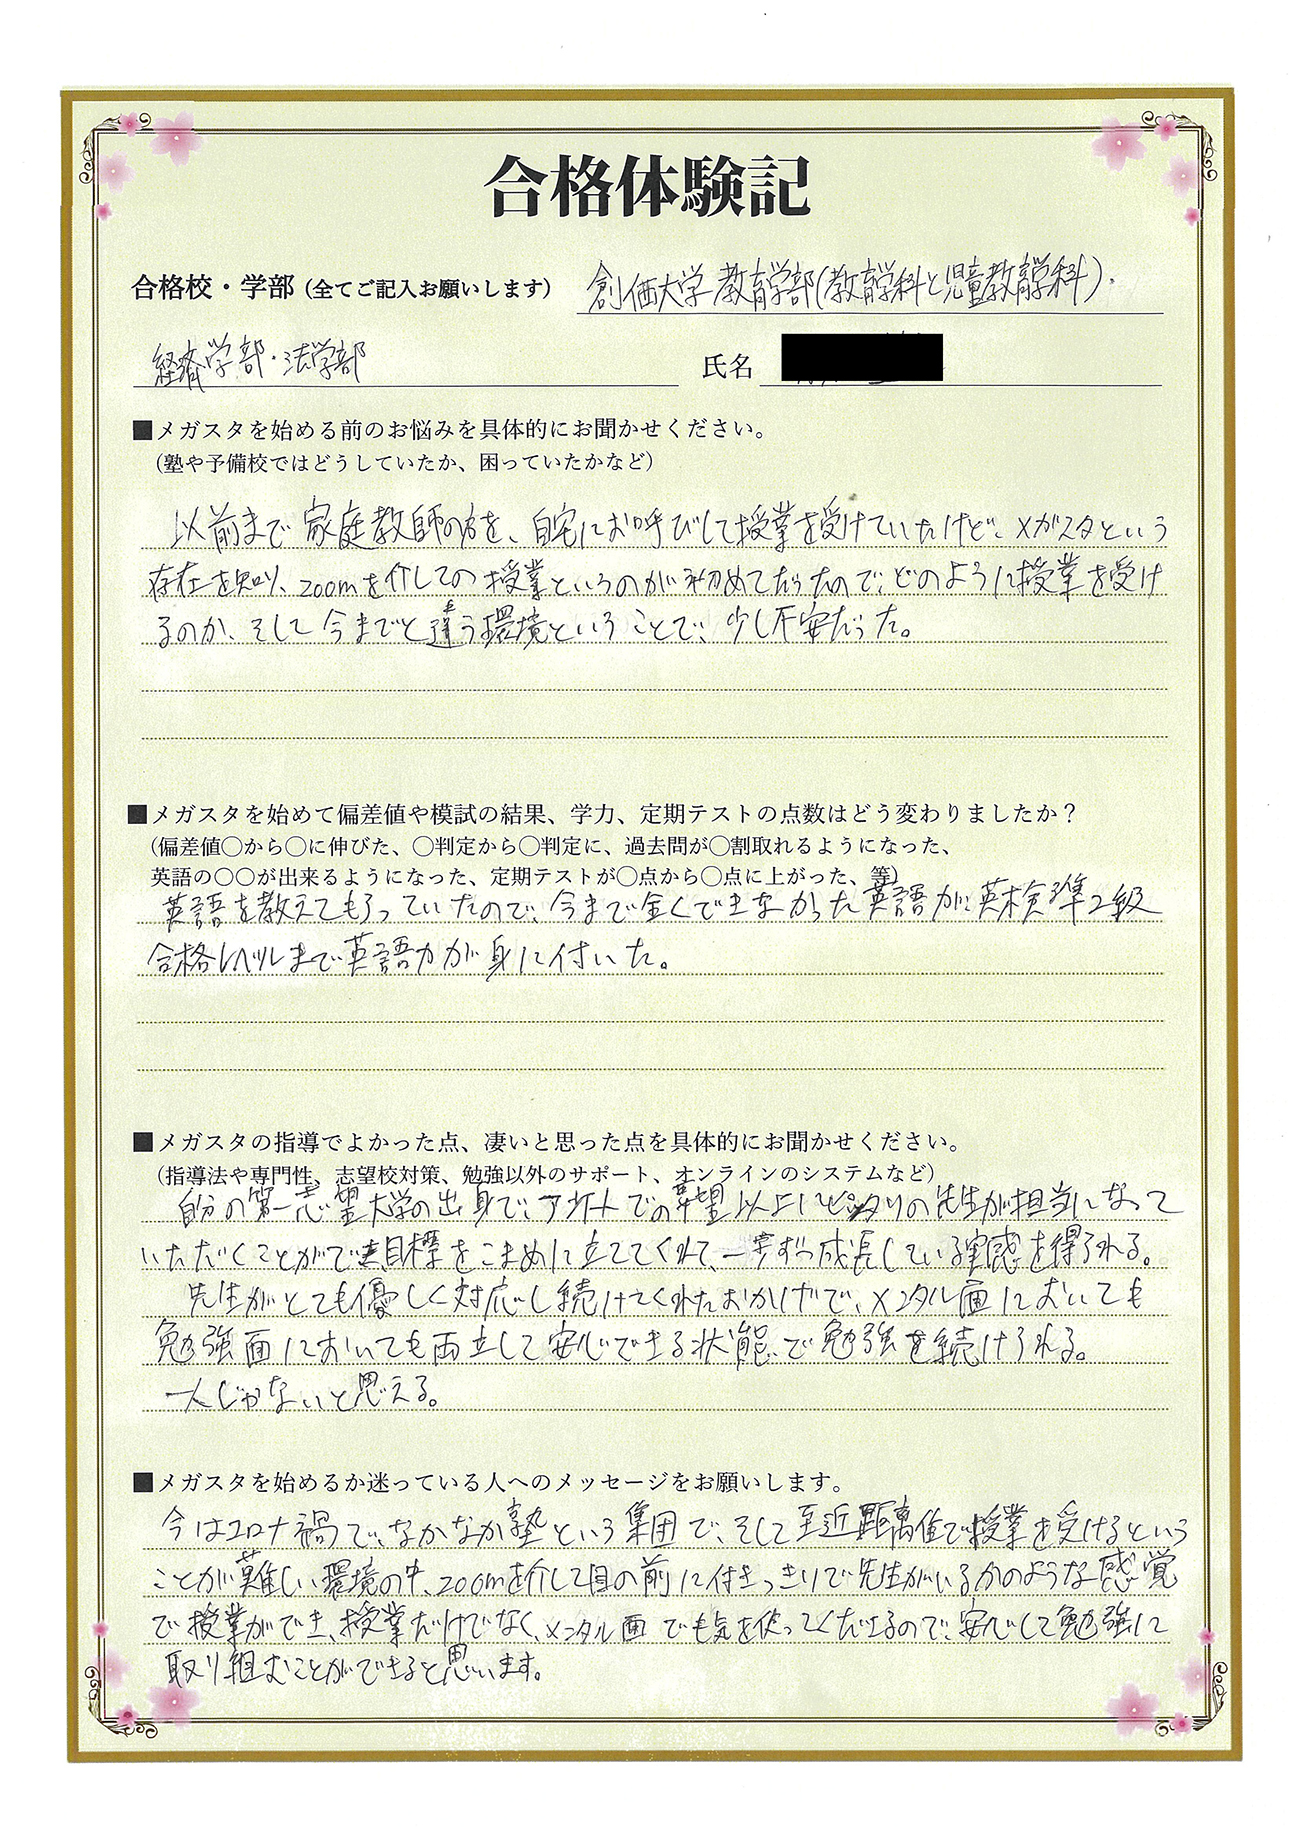 合格体験記
合格校・学部(全てご記入お願いします) 創価大学教育学部(教育学科と児童教育学科)・
経済学部・法学部 氏名
■メガスタを始める前のお悩みを具体的にお聞かせください。
(塾や予備校ではどうしていたか、困っていたかなど)
以前まで家庭教師の方を、自宅にお呼びして授業を受けていたけど、メガスタという
存在を知り、zoomを介しての授業というのが初めてだったので、どのように授業を受け
るのか、そして今までと違う環境ということで、少し不安だった。
■メガスタを始めて偏差値や模試の結果、学力、定期テストの点数はどう変わりましたか?
(偏差値〇から〇に伸びた、〇判定から〇判定に、過去問が〇割取れるようになった、
英語の〇〇が出来るようになった、定期テストが〇点から〇点に上がった、等)
英語を教えてもらっていたので、今まで全くできなかった英語が、英検準2級
合格レベルまで英語力が身に付いた。
■メガスタの指導でよかった点、凄いと思った点を具体的にお聞かせください。
(指導法や専門性、志望校対策、勉強以外のサポート、オンラインのシステムなど)
自分の第一志望大学の出身で、アンケートでの希望以上にピッタリの先生が担当になって
いただくことができ、目標をこまめに立ててくれて、一歩ずつ成長している実感を得られる。
先生がとても優しく対応し続けてくれたおかげで、メンタル面においても
勉強面においても両立して安心できる状態で勉強を続けられる。
一人じゃないと思える。
■メガスタを始めるか迷っている人へのメッセージをお願いします。
今はコロナ禍で、なかなか塾という集団で、そして至近距離で授業を受けるという
ことが難しい環境の中、zoomを介して目の前に付きっきりで先生がいるかのような感覚
で授業ができ、授業だけでなく、メンタル面でも気を使ってくださるので、安心して勉強に
取り組むことができると思います。